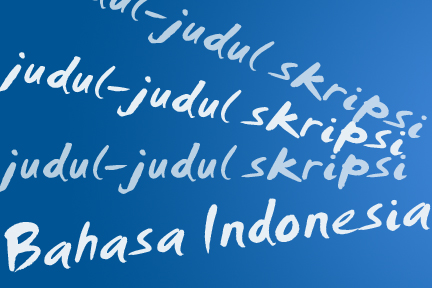 judul-judul skripsi
judul-judul skripsi
judul-judul skripsi
Bahasa Indonesia